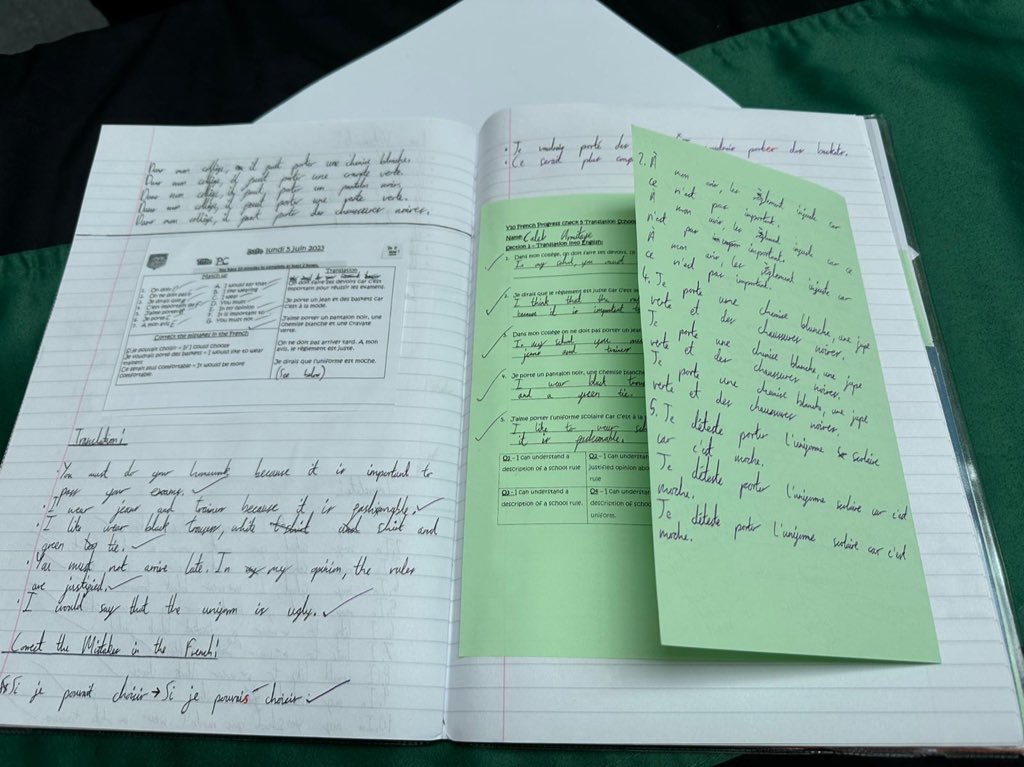 Pour mon collège, il faut porter une chemise blanche.
Pour mon collège, il faut porter une cravate verte.
Pour mon collège, il faut porter un pantalon noir.
Pour mon collège, il faut porter une jupe verte.
Pour mon collège, il faut porter des chaussures noires.
lundi 5 juin 2023
PC
You have 10 minutes to complete at least 2 boxes.
Match up
1. On doit
2. On ne doit pas
3. Je dirais que
4. C'est important
5. J'aime porter
6. Je porte
7. A mon avis
A. I would say that
B. I like wearing
C. I wear
D. You must
E. In my opinion
F. It is important to
G. You must not
Correct the mistakes in the French
Si je pouvait choisir = If I could choose
Je voudrais porté des baskets = I would like to wear
trainers
Ce serais plus comfortable = It would be more
comfortable.
Translation
On doit faire ses devoirs car c'est
important pour réussir les examens.
Je porte un jean et des baskets car
c'est à la mode.
J'aime porter un pantalon noir, une
chemise blanche et une cravate
verte.
On ne doit pas arriver tard. A mon
avis, le règlement est juste.
Je dirais que l'uniforme est moche.
(See below)
Translation!
· You must do your homework because it is important to
pass your exams.
· I wear jeans and trainer because it is fashionable.
· I like wear black trouser, white shirt and
green tie.
· You must not arrive late. In my opinion, the rules
are justified.
· I would say that the uniform is ugly.
Correct the Mistakes in the French!
Si je pouvait choisir → Si je pouvais choisir
· Je voudrais porté des
voudrais porter des baskets.
· Ce serait plus
Y10 French Progress Check 5 Translation School
Name: Caleb Armitage
Section 1 – Translation into English:
1. Dans mon collège, on doit faire ses devoirs.
In my school, you must
2. Je dirais que le règlement est juste car c'est
I think that the
because it is important
3. Dans mon collège on ne doit pas porter un jean
In my school you
jeans and trainer
4. Je porte un pantalon noir, une chemise blanche
I wear black
and a green tie.
5. J'aime porter l'uniforme scolaire car c'est à la
I like to wear
it is fashionable.
Q1 – I can understand a
description of a school rule
Q2 – I can understand
justified opinion about
rule
Q3 – I can understand a
description of a school rule.
Q4 – I can understand
description of school
uniform.
2. À mon avis, les règlement injuste car
ce n'est pas important.
À mon avis les règlement injuste car ce
n'est pas important.
À mon avis, les règlement injuste car
ce n'est pas important.
4. Je porte une chemise blanche, une jupe
verte et des chaussures noires.
Je porte une chemise blanche, une jupe
verte et des chaussures noires.
Je porte une chemise blanche, une jupe
verte et des chaussures noires.
5. Je déteste porter l'uniforme scolaire
car c'est moche.
Je déteste porter l'uniforme scolaire car c'est
moche.
Je déteste porter l'uniforme scolaire car c'est
moche.